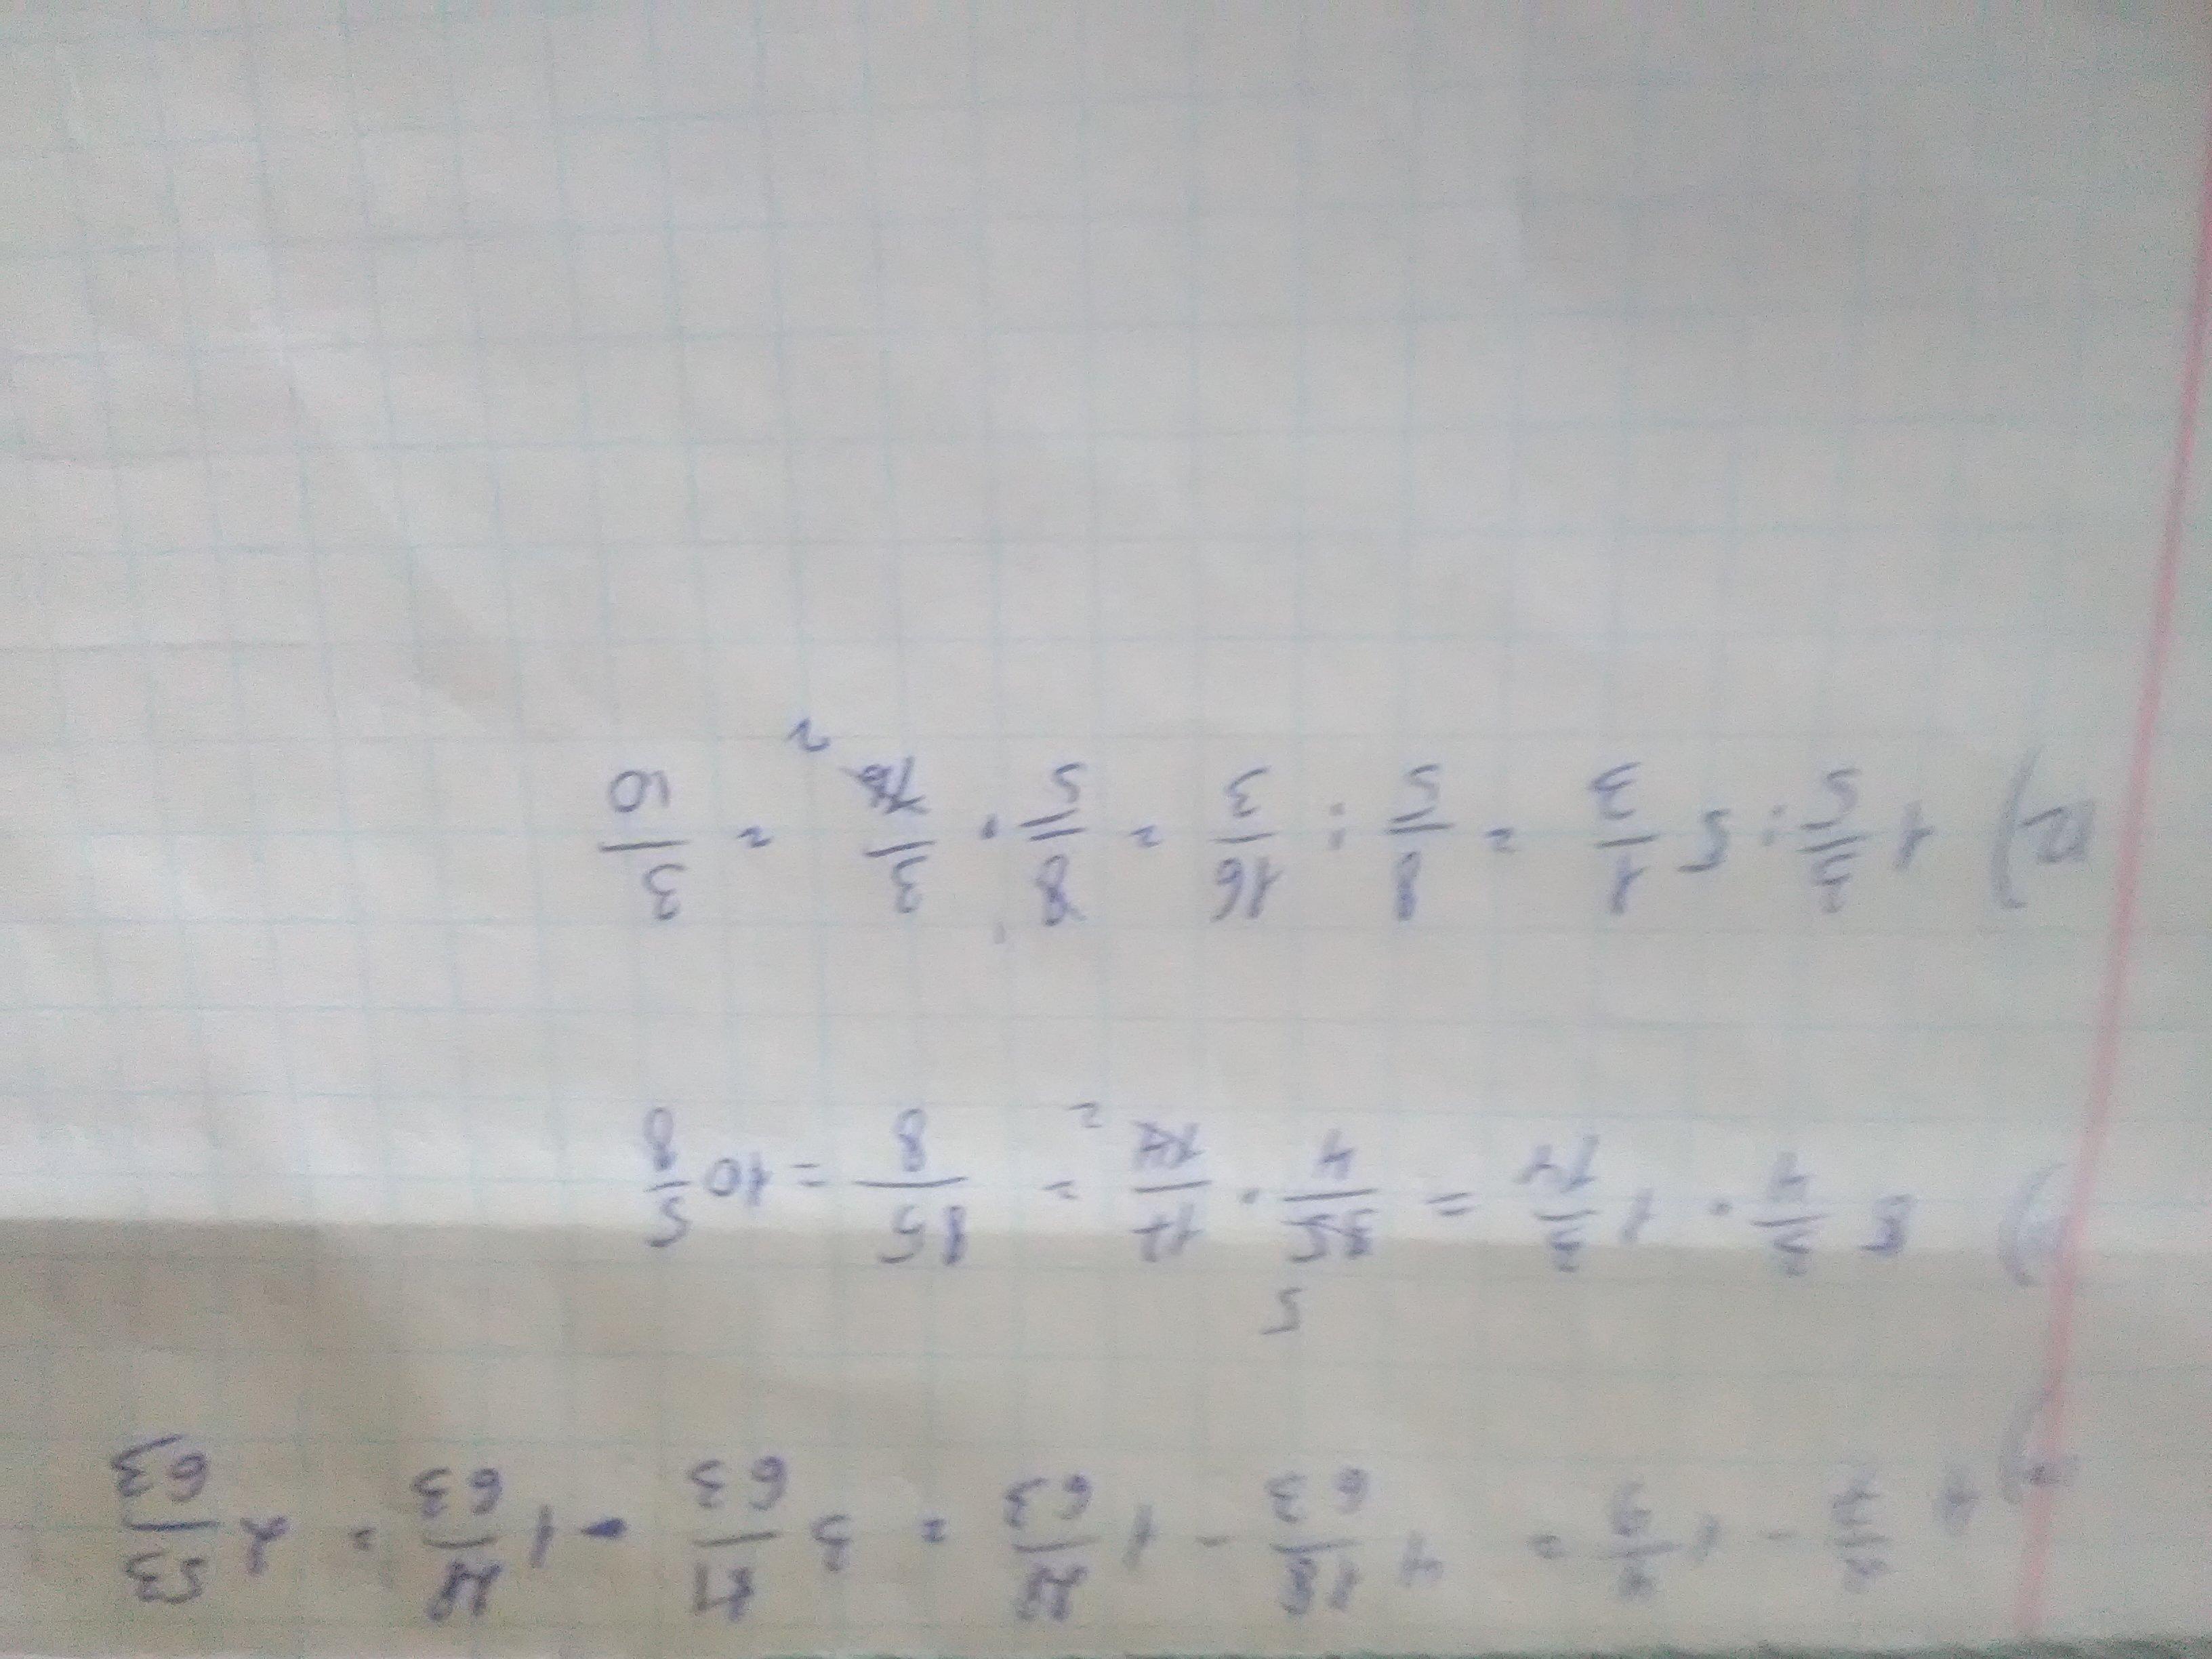 ) 4 2/7 - 1 4/9 = 4 18/63 - 1 28/63 = 3 81/63 - 1 28/63 = 2 53/63
5
) 8 3/4 · 1 3/14 = 35/4 · 17/14 = 85/8 = 10 5/8
2
12) 1 3/5 : 5 1/3 = 8/5 : 16/3 = 8/5 · 3/16 = 3/10
2